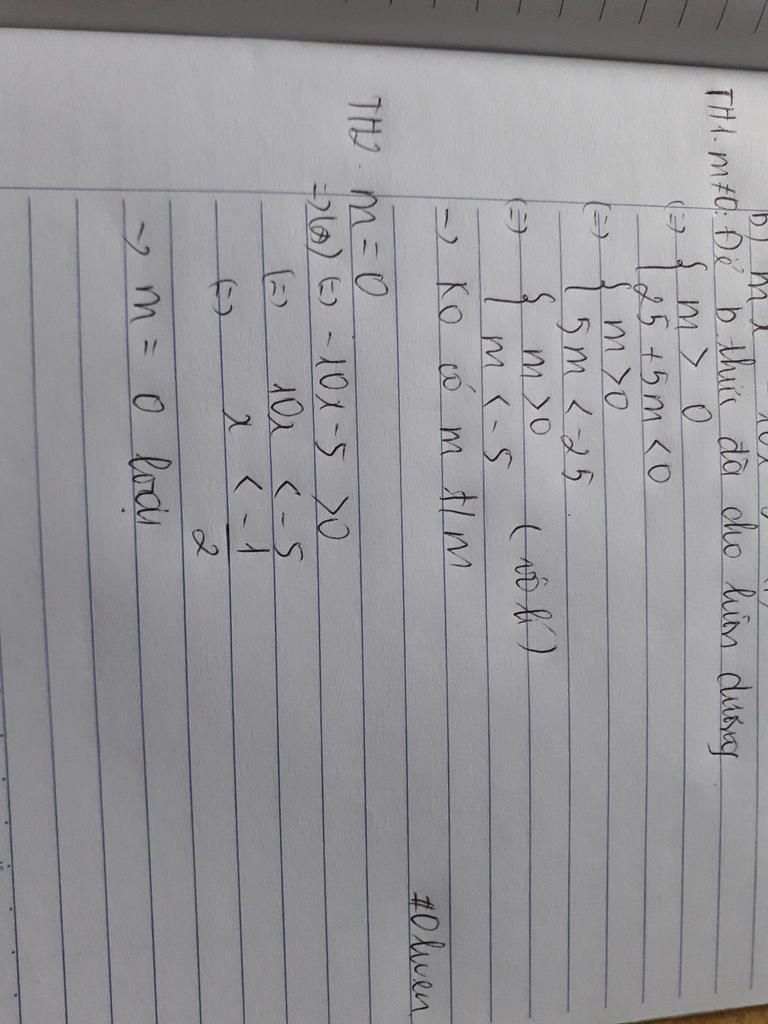 b) mx - 10x
TH1. m≠0: Để b thức đã cho luôn dương
(=) { m > 0
25 + 5m < 0
(=) { m > 0
5m < -25
(=) { m > 0
m < -5 (vô lí)
-> Ko có m t/m
TH2. m = 0
=> (*) (=) -10x - 5 > 0
(=) 10x < -5
(=) x < -1/2
-> m = 0 loại
#Oliven